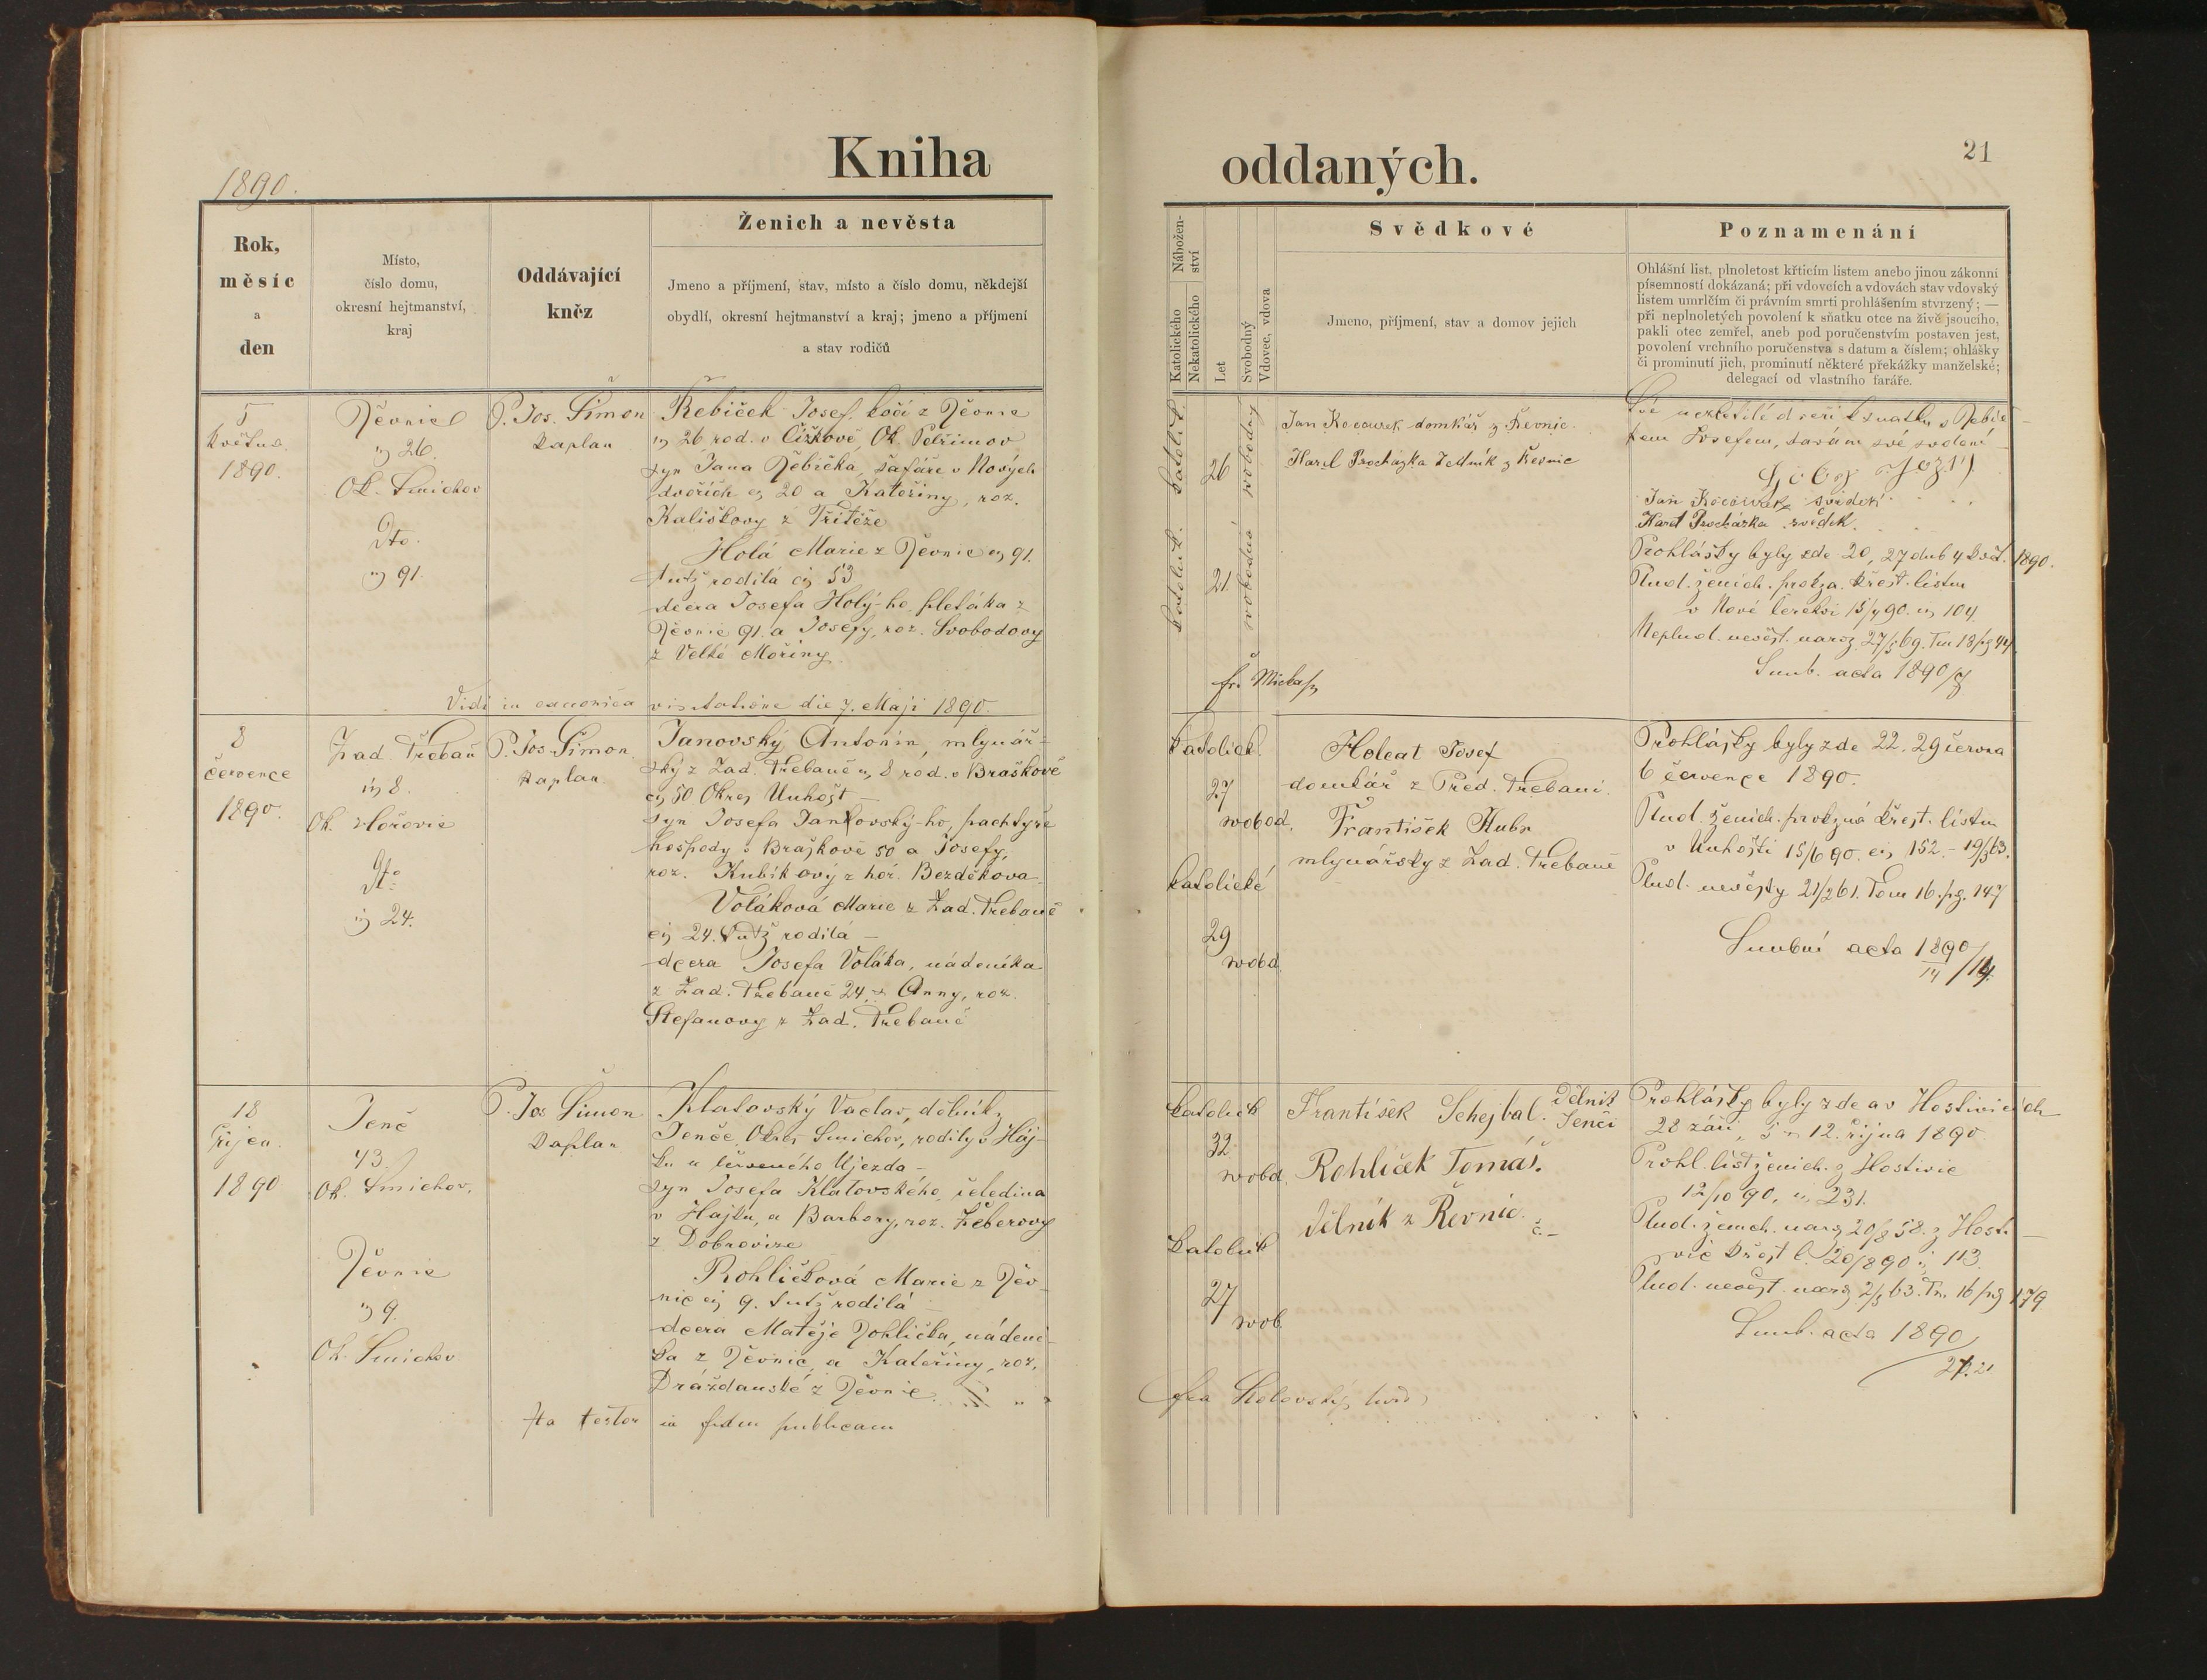 Kniha
1890.
Rok,
měsíc
a
den
Místo,
číslo domu,
okresní hejtmanství,
kraj
Oddávající
kněz
Ženich a nevěsta
Jmeno a příjmení, stav, místo a číslo domu, někdejší
obydlí, okresní hejtmanství a kraj; jmeno a příjmení
a stav rodičů
5
Května
1890.
Řevnice
26.
Ok. Smichov
Dto.
91.
P. Jos. Šimon
Kaplan
Řebíček Josef, kočí z Řevnic
26 rod. v Čížkově, Ok. Pelřimov
syn Jana Řebíčka, šafáře v Nových
dvořích 20 a Kateřiny, roz.
Kališkovy z
Holá Marie z Řevnic 91.
tutž rodilá čis 53
dcera Josefa Holý-ho
Řevnic 91. a Josefy, roz. Svobodovy
z Velké Mořiny
Vidi in canonica visitatione die 7. Maji 1890.
8
července
1890.
Zad. Třebaň
čis 8.
Ok. Hořovic
Dto
čis 24.
P. Jos. Šimon
Kaplan
Janovský Antonín, mlynář-
ský z Zad. Třebaně 8 rod. v Braškově
čis 50 Okres Unhošt –
syn Josefa Janovský-ho, pachtýře
hospody v Braškově 50 a Josefy,
roz. Kubíkový z hor. Bezděkova
Voláková Marie z Zad. Třebaně
čis 24. tutž rodilá –
dcera Josefa Voláka, nádeníka
z Zad. Třebaně 24, a Anny, roz.
Štefanovy z Zad. Třebaně
18
Říjen.
1890
Jenč
43.
Ok. Smichov.
Řevnic
9.
Ok. Smichov
P. Jos Šimon
Kaplan
Klatovský Vaclav, dělník z
Jenče, Okres Smichov, rodilý v Háj-
ku u červeného Ujezda –
syn Josefa Klatovského, čeledína
v Hajku, a Barbory, roz. Žeberovy
z Dobrovize
Rohličková Marie z Řev-
nic čis 9. tutž rodilá –
dcera Matěje Rohlíčka, nádení-
ka z Řevnic, a Kateřiny, roz.
Drážďanské z Řevnic.
Ita testor in fidem publicam
oddaných.
21
Nábožen-
ství
Katolického
Nekatolického
Let
Svobodný
Vdovec, vdova
Svědkové
Jmeno, příjmení, stav a domov jejich
Poznamenání
Ohlášní list, plnoletost křticím listem anebo jinou zákonni
písemností dokázaná; při vdovcích a vdovách stav vdovský
listem umrlčím či právním smrti prohlášením stvrzený; —
při neplnoletých povolení k sňatku otce na živě jsoucího,
pakli otec zemřel, aneb pod poručenstvím postaven jest,
povolení vrchního poručenstva s datum a číslem; ohlášky
či prominutí jich, prominutí některé překážky manželské;
delegací od vlastního faráře.
katolick.
26
svobodný
katolick.
21.
svobodná
Jan Kocourek domkář z Řevnic.
Karel Procházka z Řevnic
Své nezletilé dceři k snatku s Řebíč-
kem Josefem, dávám své svolení
Jan Kocourek svědek
Karel Procházka svědek.
Prohlášky byly zde 20, 27 dub 4 Kvě. 1890.
Plnol. ženich. prokza. křest. listem
v Nové 15/4 90. 104.
Neplnol. nevěst. naroz. 27/5 69. Tm 18 pg 44
Snub. acta 1890/8
Katolick.
27
svobod.
katolické
29
svobd.
Holcat Josef
domkář z Před. Třebani.
František Kubr
mlynářský z Zad. Třebaně
Prohlášky byly zde 22, 29 června
6 července 1890.
Plnol. ženich. prokzná křest. listem
v Unhošti 15/6 90. čis 152. – 19/5 63.
Plnol. nevěsty 21/2 61. Tom 16. pg. 147
Snubní acta 1890/14
katolick
32
svobd.
katolick
27
svob.
František Schejbal. Dělník
Jenči
Rohlíček Tomáš.
dělník z Řevnic.
Prohlášky byly zde a v Hostivicích
28 září, 5 12. října 1890
Prohl. list ženich. z Hostivic
12/10 90. 231.
Plnol. ženich. naroz 20/8 58. z Hosti-
vic křest l. 20/8 90 113.
Plnol. nevěst. naroz 2/5 63. Tm. 16 pg 179
Snub. acta 1890